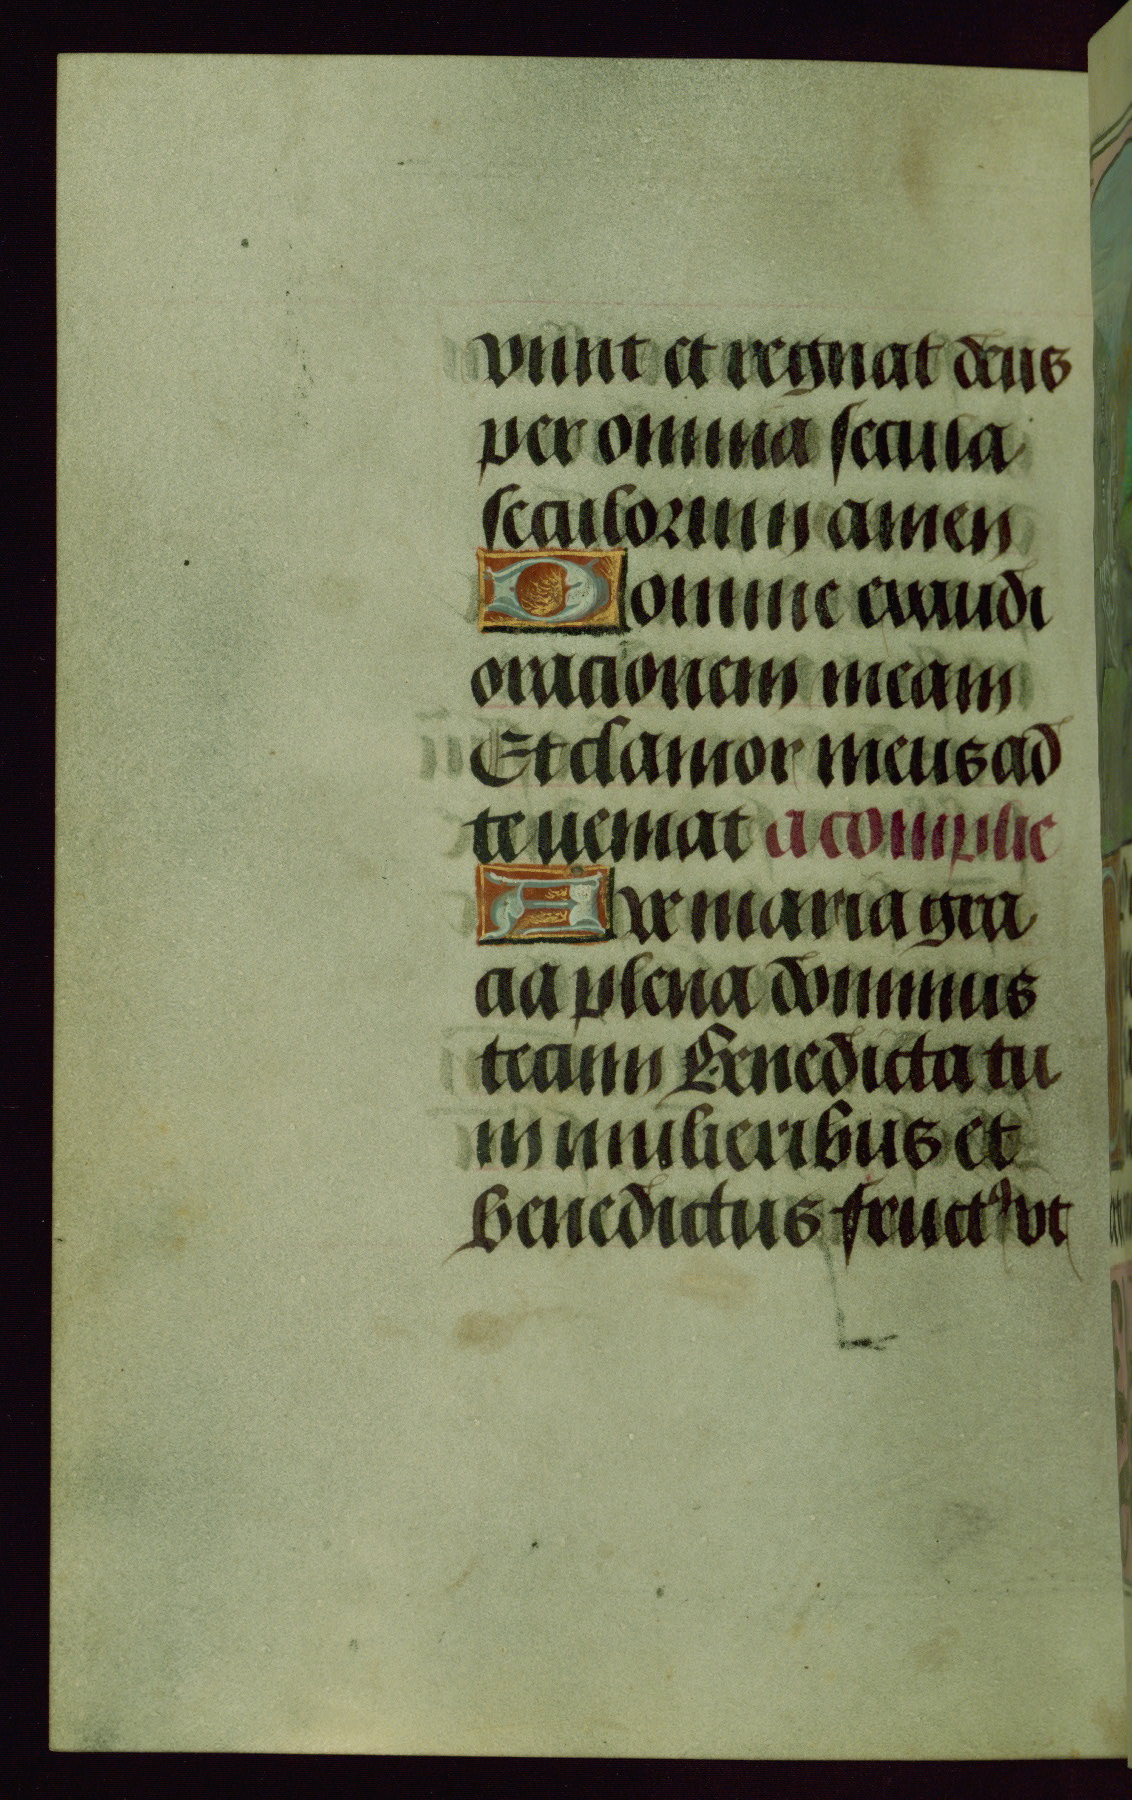 viuit et regnat deus
per omnia secula
seculorum amen
Domine exaudi
oracionem meam
Et clamor meus ad
te ueniat a complie
Aue maria gra
cia plena dominus
tecum Benedicta tu
in mulieribus et
benedictus fructꝰ vt